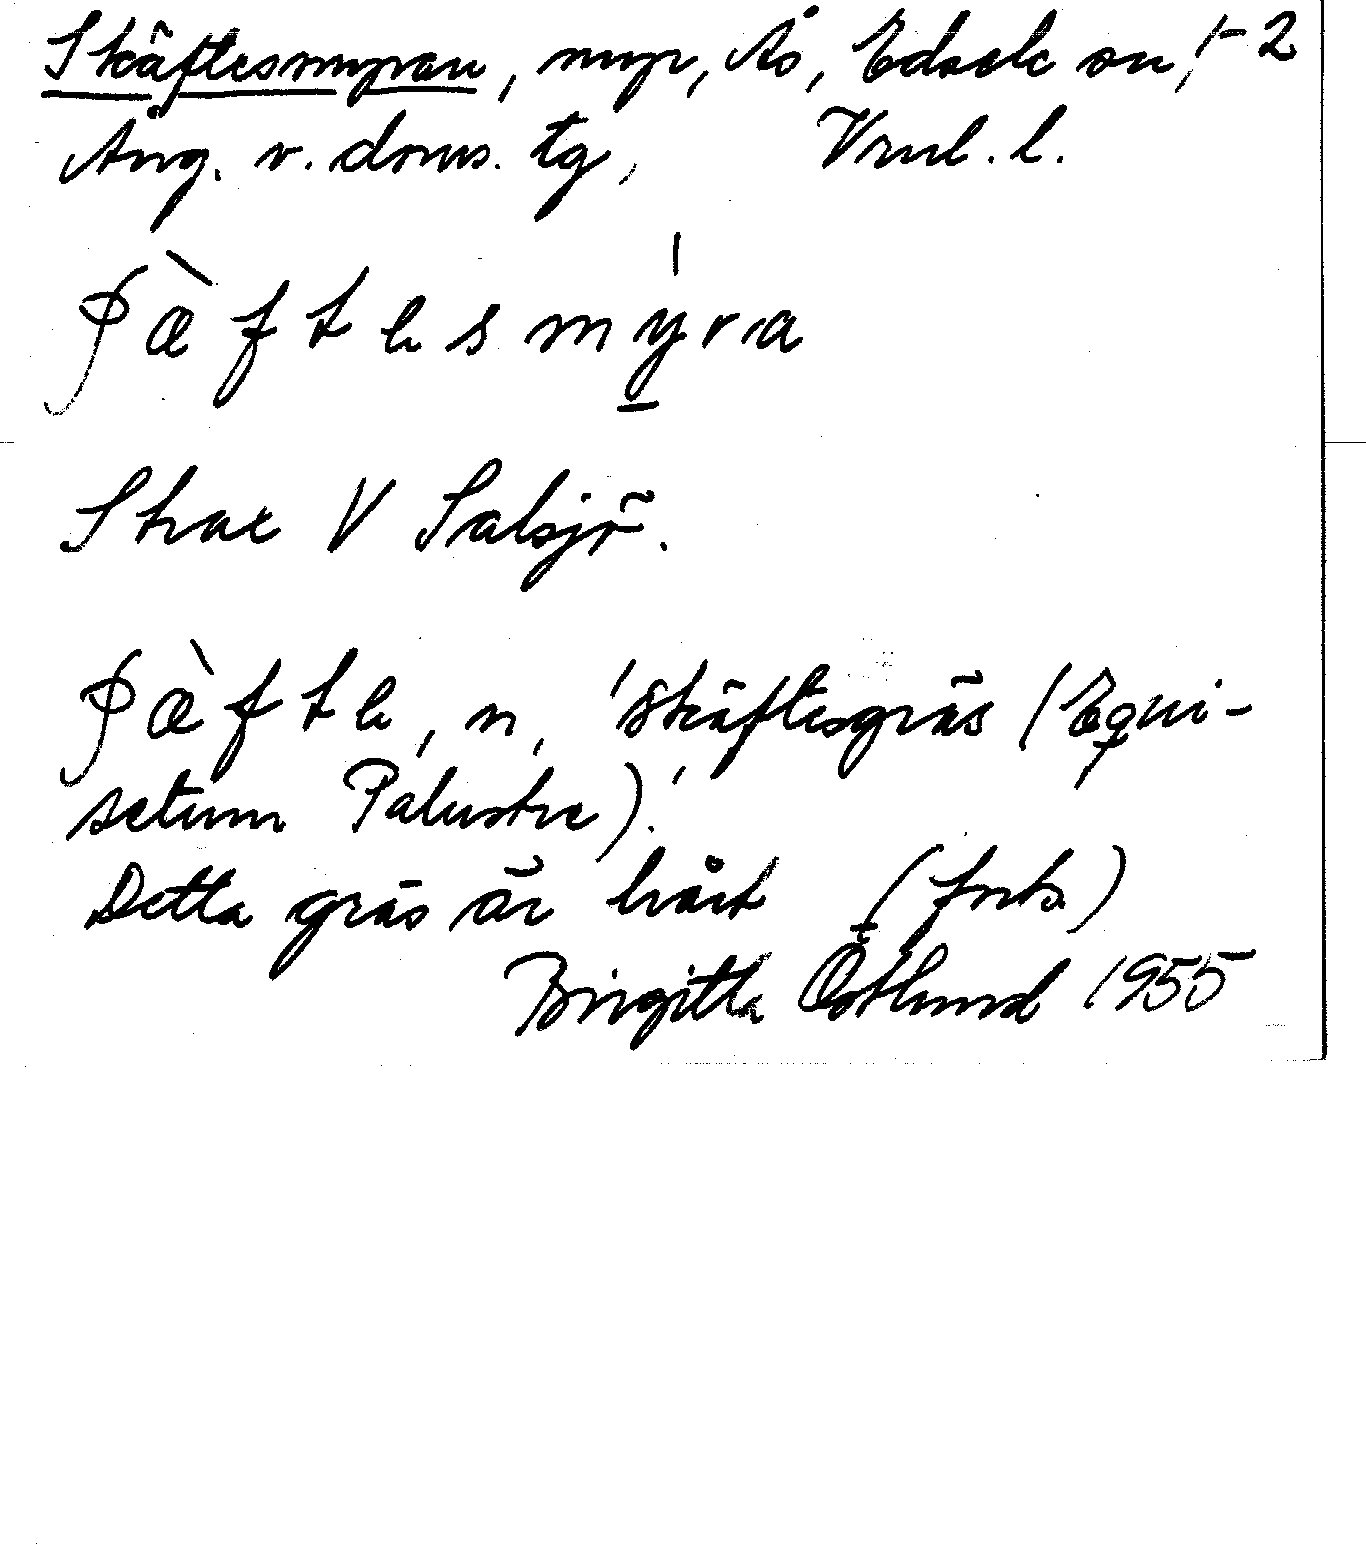 Skäftesmyran, myr, Ås, Edsele sn, 1-2
Ång. v. doms. tg, Vrnl. l.
ʃæ̀ftesmy̱ra
Strax V Salsjö.
ʃæ̀fte, n, 'skäftesgräs (Equi-
setum Palustre)'.
Detta gräs är hårt (forts)
Birgitta Östlund 1955